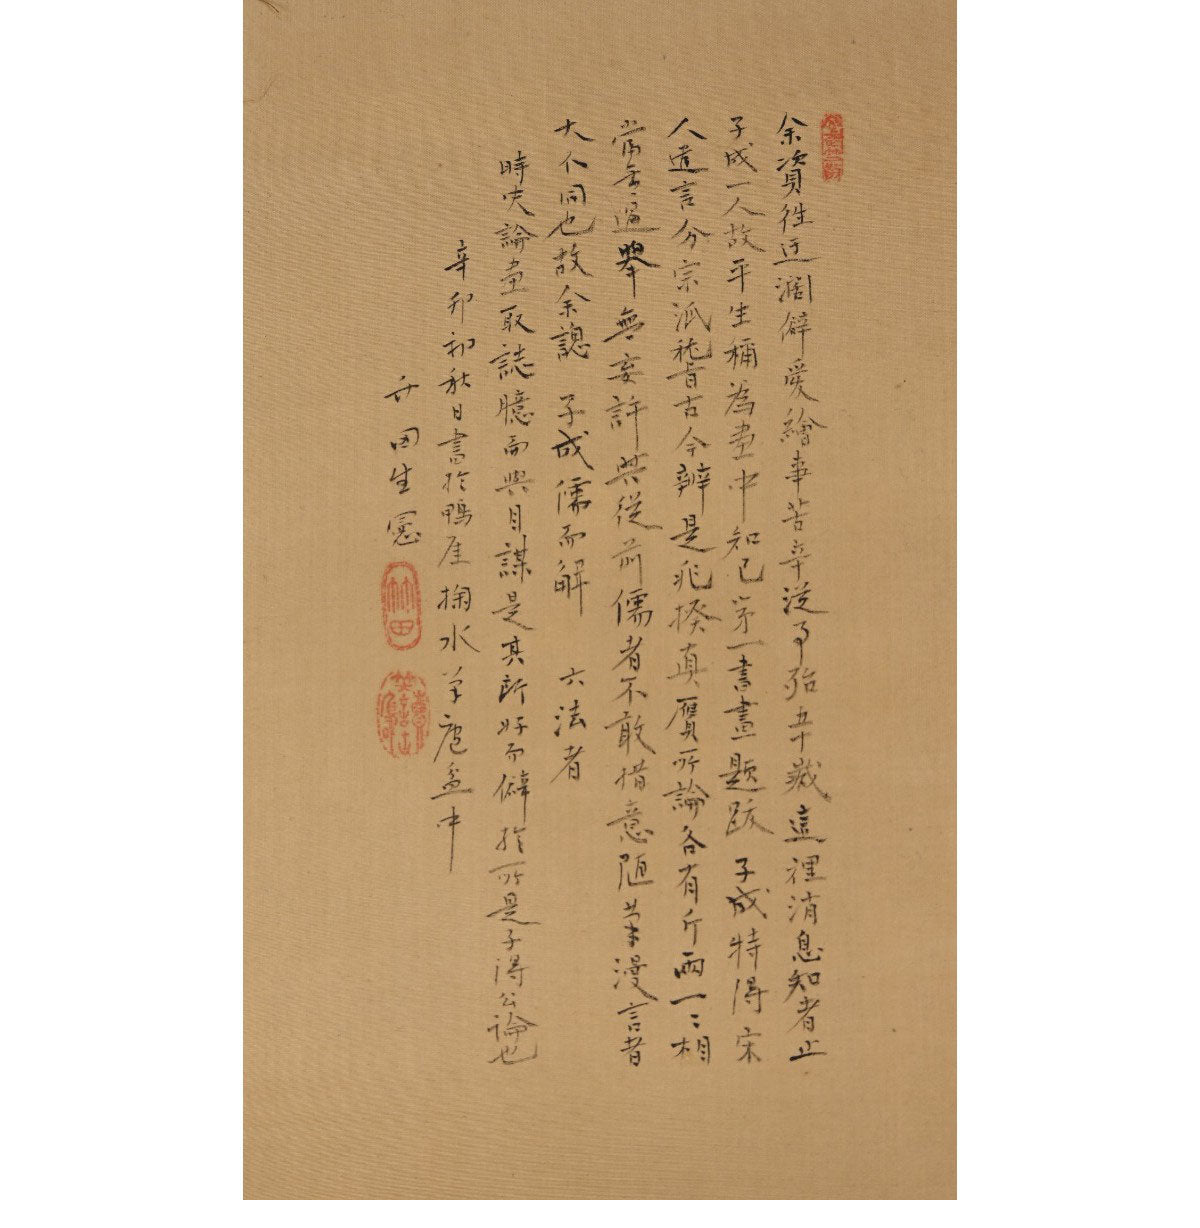 余資性迂濶僻愛繪事苦辛從事殆五十歲這裡消息知者止
子成一人故平生稱為畫中知己第一書畫題跋 子成特得宋
人遺言分宗派託旨古今辨是非揆真贋所論各有斤兩一〻相
當無過舉無妄許與從前儒者不敢措意随筆漫言者
大不同也故余謂 子成儒而解 六法者
時史論畫取誌臆而與目謀是其所好而僻於所是子得公論也
辛卯初秋日書於鴨厓掬水草廬盆中
竹田生憲
竹田